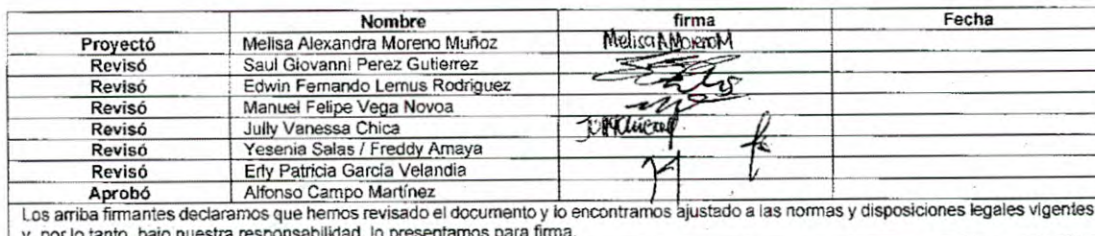 Nombre firma Fecha
Proyectó Melisa Alexandra Moreno Muñoz MelisaAMorenoM
Revisó Saul Giovanni Perez Gutierrez
Revisó Edwin Fernando Lemus Rodriguez
Revisó Manuel Felipe Vega Novoa
Revisó Jully Vanessa Chica
Revisó Yesenia Salas / Freddy Amaya
Revisó Erly Patricia García Velandia
Aprobó Alfonso Campo Martínez
Los arriba firmantes declaramos que hemos revisado el documento y lo encontramos ajustado a las normas y disposiciones legales vigentes
y, por lo tanto, bajo nuestra responsabilidad, lo presentamos para firma.